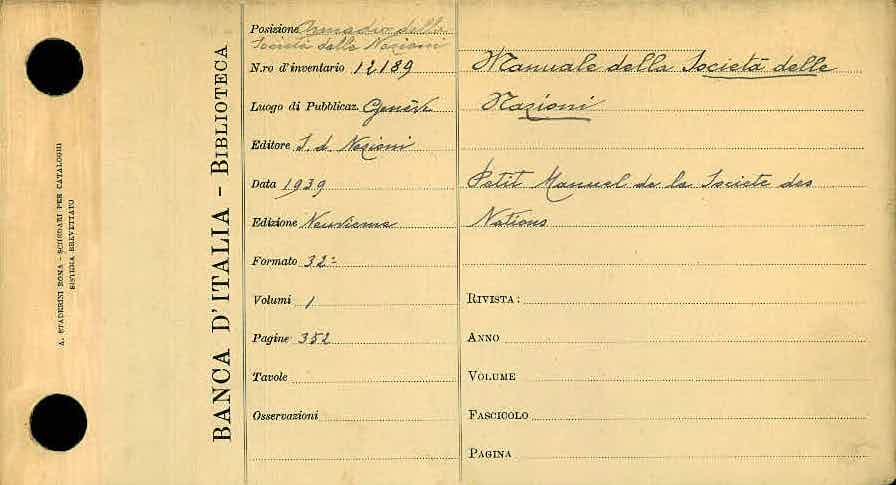 A. STADERINI ROMA - SCHEDARI PER CATALOGHI
SISTEMA BREVETTATO
BANCA D'ITALIA - BIBLIOTECA
Posizione Armadio della
Società delle Nazioni
N.ro d'inventario 12189
Luogo di Pubblicaz. Genève
Editore S. d. Nazioni
Data 1939
Edizione Neuvieme
Formato 32º
Volumi 1
Pagine 352
Tavole
Osservazioni
Manuale della Società delle
Nazioni
Petit Manuel de la Societe des
Nations
RIVISTA:
ANNO
VOLUME
FASCICOLO
PAGINA